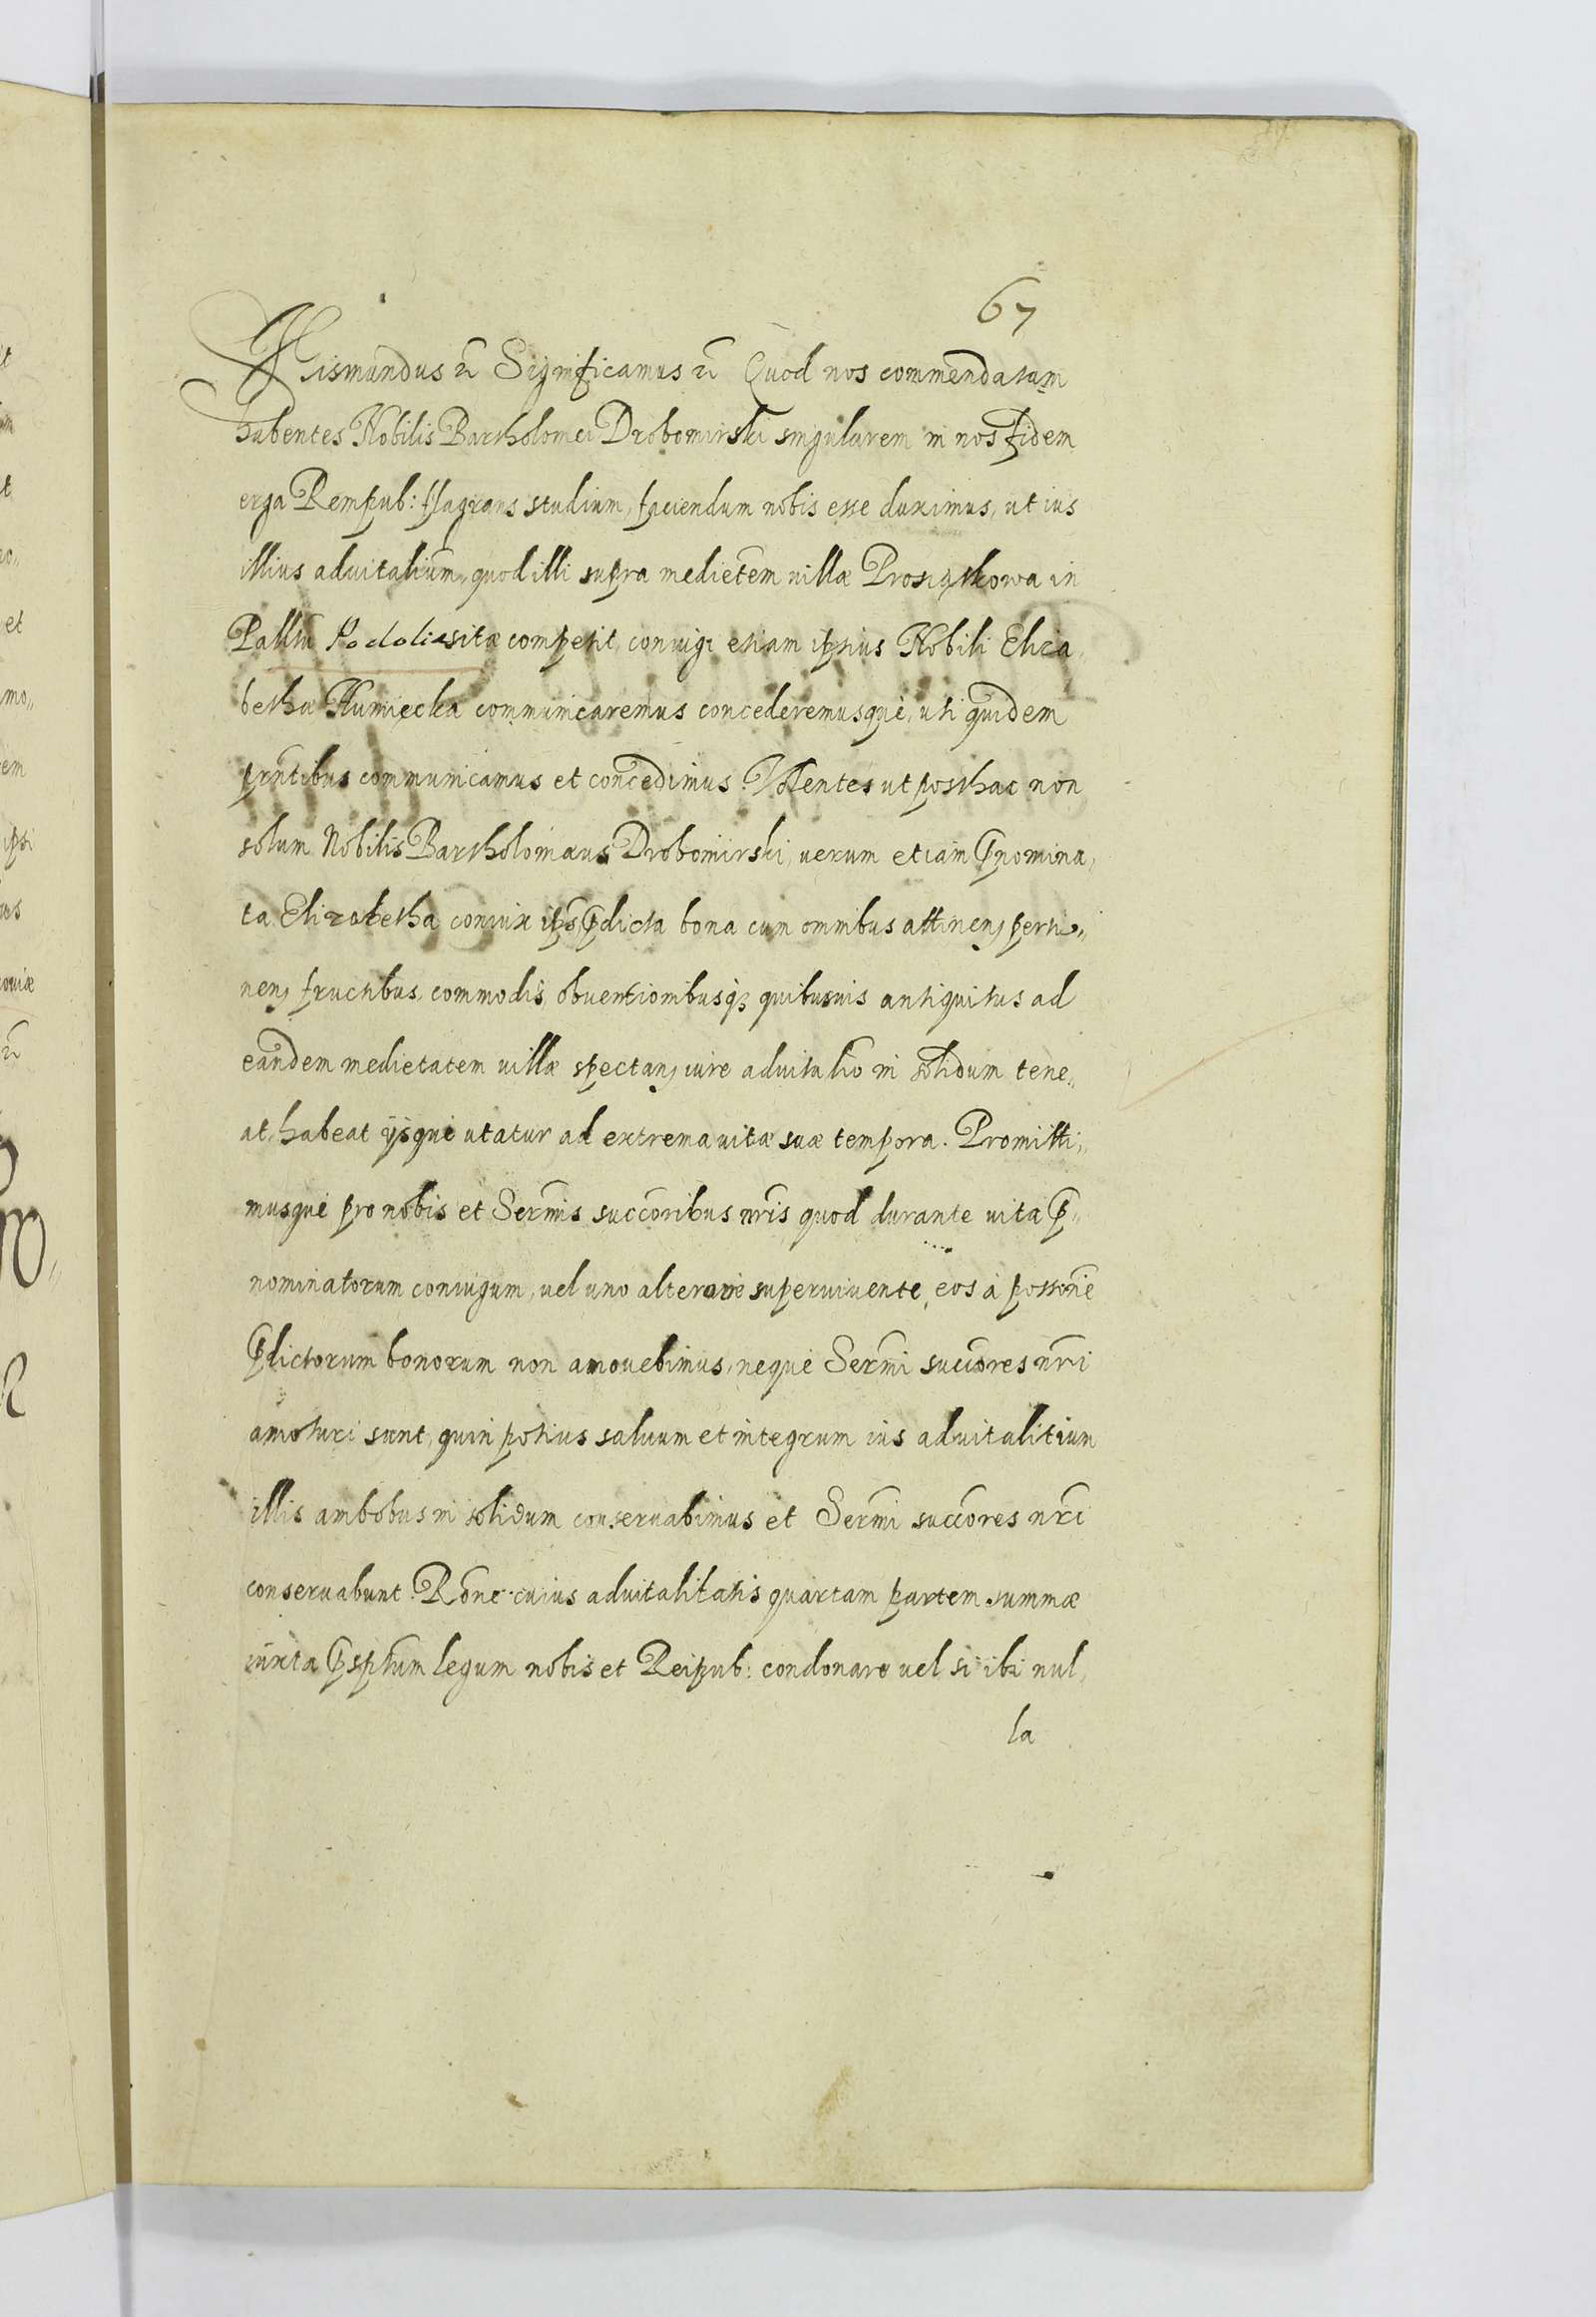 67
Sigismundus etc Significamus etc Quod nos commendatam
habentes Nobilis Bartholomei Drobomirski singularem in nos fidem
erga Rempub: flagrans studium, faciendum nobis esse duximus, ut ius
illius aduitalium, quod illi supra medietem uillæ Prosiąthkowa in
Palltu Podoliæ sitæ competit, coniugi etiam ipsius Nobili Eliza„
bethæ Humięcka communicaremus concederemusque, uti quidem
prntibus communicamus et concedimus. Volentes ut posthac non
solum Nobilis Bartholomæus Drobomirski, uerum etiam pnomina„
ta Elizabetha coniux ips pdicta bona cum omnibus attinen, perti„
nen, fructibus, commodis, obuentionibusq quibusuis antiquitus ad
eandem medietatem uillæ spectan, iure aduitalio in solidum tene„
at, habeat ijsque utatur ad extrema uitæ suæ tempora. Promitti„
musque pro nobis et Sermis succoribus nris quod durante uita p„
nominatorum coniugum, uel uno alteroue superuiuente, eos à possone
pdictorum bonorum non amouebimus, neque Sermi succores nri
amoturi sunt, quin potius saluum et integrum ius aduitalitium
illis ambobus in solidum conseruabimus et Sermi succores nri
conseruabunt. Rone cuius aduitalitatis quartam partem summæ
iuxta psptum legum nobis et Reipub: condonare uel si ibi nul„
la